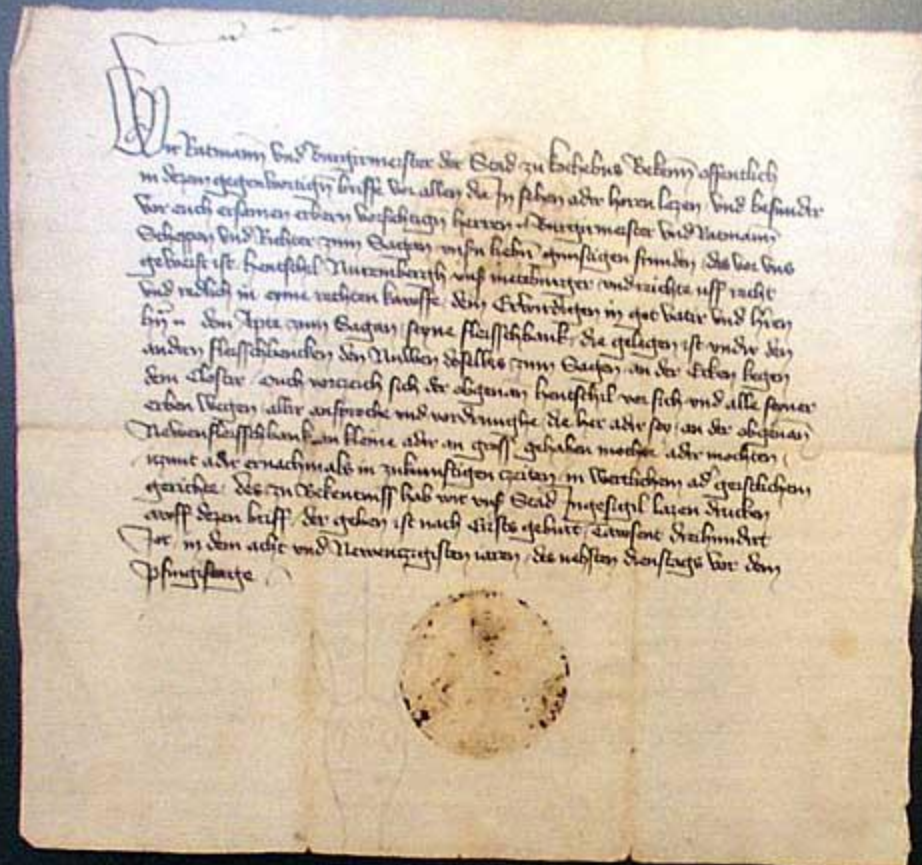 Wir Ratmann vnd Burgirmeister der Stad zu kothebus Bekenn offentlich
in dezem gegenwortign briffe vor allen die In sehen adir horen lezen vnd besundir
vor euch ersamen erbern vorsichtign herren Burgirmeister vnd Ratmann
Scheppen vnd Richter zum Sagan vnsn liebn gunstigen frunden das vor vns
gewest ist hentschil Nurembergh vnsr meteburger vnd reichte uff recht
vnd redlich in eyme rechten kawffe dem Erwirdigen in got vatir vnd hren
hn dem Apte zum Sagan seyne fleisschbank die gelegen ist vndir den
andirn fleisschbencken den Nuwen doselbis zum Sagan an der Ecken kegen
dem Closter ouch vorczeich sich der obgenan hentschil vor sich vnd alle seyner
erben wegen allir ansproche vnd vordrunghe die her adir sey an der obgenan
Newenfleisschbank an kleine adir an gross gehaben mochte adir mochten
iczunt adir ernachmals in zukunftigen czeiten in wertlichem adr geistlichem
gerichte des zu Bekentniss hab wir vnsr Stad Ingesigil lazen drucken
uff dezen briff der geben ist nach Crists geburt Tawsent dreihundirt
Jar in dem acht vnd Newenczigisten iaren des nehsten dienstags vor dem
pfingistage